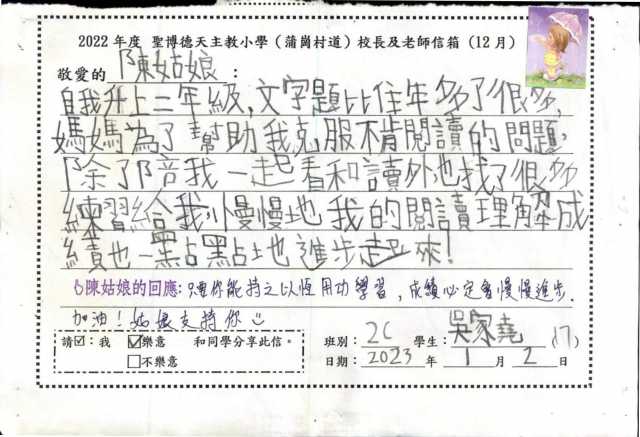 2022 年度 聖博德天主教小學（蒲崗村道）校長及老師信箱（12月）
敬愛的 陳姑娘：
自我升上二年級，文字題比往年多了很多，
媽媽為了幫助我克服不肯閱讀的問題，
除了陪我一起看和讀外也找了很多
練習給我，慢慢地我的閱讀理解成
績也一點點地進步起來！
陳姑娘的回應：只要你能持之以恆用功學習，成績必定會慢慢進步.
加油！姑娘支持你☺
請☑：我 ☑樂意 和同學分享此信。 班別：2C 學生：吳家堯 (17)
☐不樂意 日期：2023 年 1 月 2 日